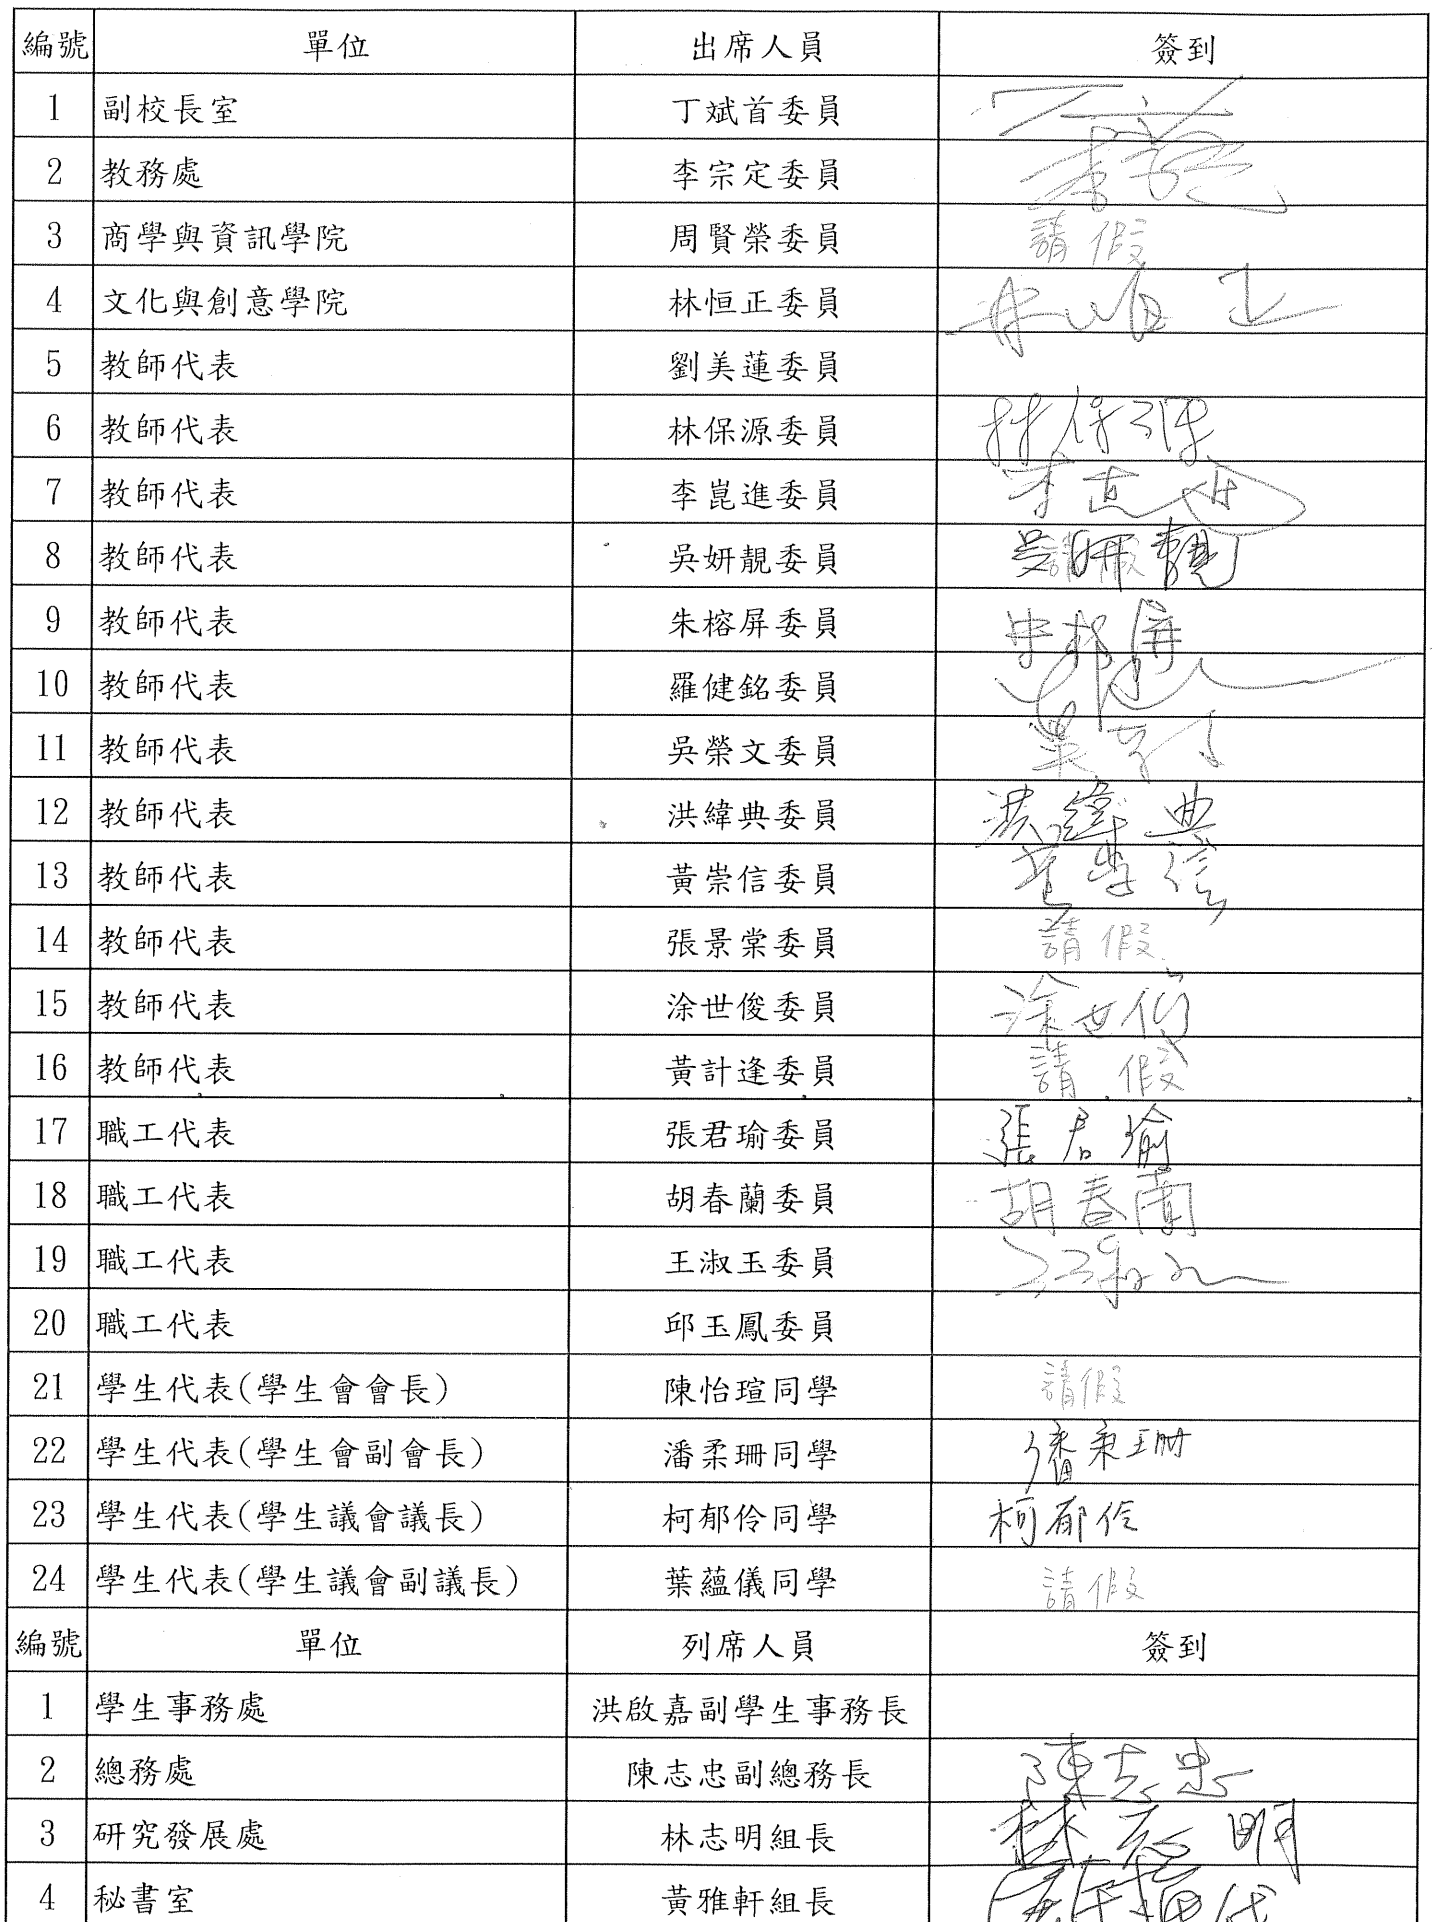 編號 單位 出席人員 簽到
1 副校長室 丁斌首委員
2 教務處 李宗定委員 李宗定
3 商學與資訊學院 周賢榮委員 請假
4 文化與創意學院 林恒正委員 林恒正
5 教師代表 劉美蓮委員
6 教師代表 林保源委員 林保源
7 教師代表 李崑進委員
8 教師代表 吳妍靚委員 吳妍靚
9 教師代表 朱榕屏委員 朱榕屏
10 教師代表 羅健銘委員
11 教師代表 吳榮文委員 吳榮文
12 教師代表 洪緯典委員 洪緯典
13 教師代表 黃崇信委員 黃崇信
14 教師代表 張景棠委員 請假
15 教師代表 涂世俊委員 涂世俊
16 教師代表 黃計逢委員 請假
17 職工代表 張君瑜委員 張君瑜
18 職工代表 胡春蘭委員 胡春蘭
19 職工代表 王淑玉委員 王淑玉
20 職工代表 邱玉鳳委員
21 學生代表(學生會會長) 陳怡瑄同學 請假
22 學生代表(學生會副會長) 潘柔珊同學 潘柔珊
23 學生代表(學生議會議長) 柯郁伶同學 柯郁伶
24 學生代表(學生議會副議長) 葉蘊儀同學 請假
編號 單位 列席人員 簽到
1 學生事務處 洪啟嘉副學生事務長
2 總務處 陳志忠副總務長 陳志忠
3 研究發展處 林志明組長 林志明
4 秘書室 黃雅軒組長